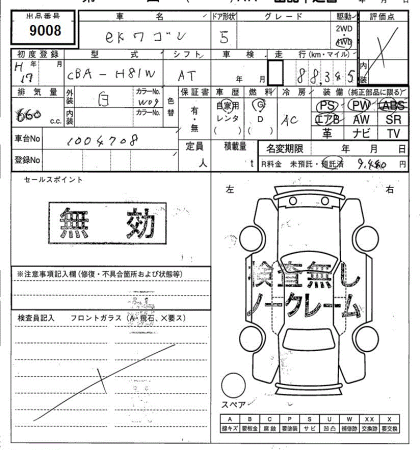 出品番号 車名 ドア形状 グレード 駆動 評価点
9008 eKワゴン 5 2WD 4WD
初度登録 型式 シフト 車検 走行(km・マイル) 内装
H 17 年 CBA-H81W AT 年 月
排気量 外装 カラーNo. 色替 保証書 車歴 燃料 冷房 装備(純正部品に限る)
660 c.c. 白 W09 有・無 自家用 レンタ G D AC PS PW ABS
内装 カラーNo. エアB AW SR
革 ナビ TV
車台No 1004708 定員 人 積載量 t 名変期限 年 月 日
登録No R料金 未預託・預託済 9,480 円
セールスポイント 左 右
無効
検査無し
ノークレーム
※注意事項記入欄(修復・不具合箇所および状態等)
検査員記入 フロントガラス(A・飛石、X要ス)
スペア
A B C P S U W XX X
線キズ 要板金 腐蝕 要塗装 サビ 凹凸 補修跡 交換跡 要交換